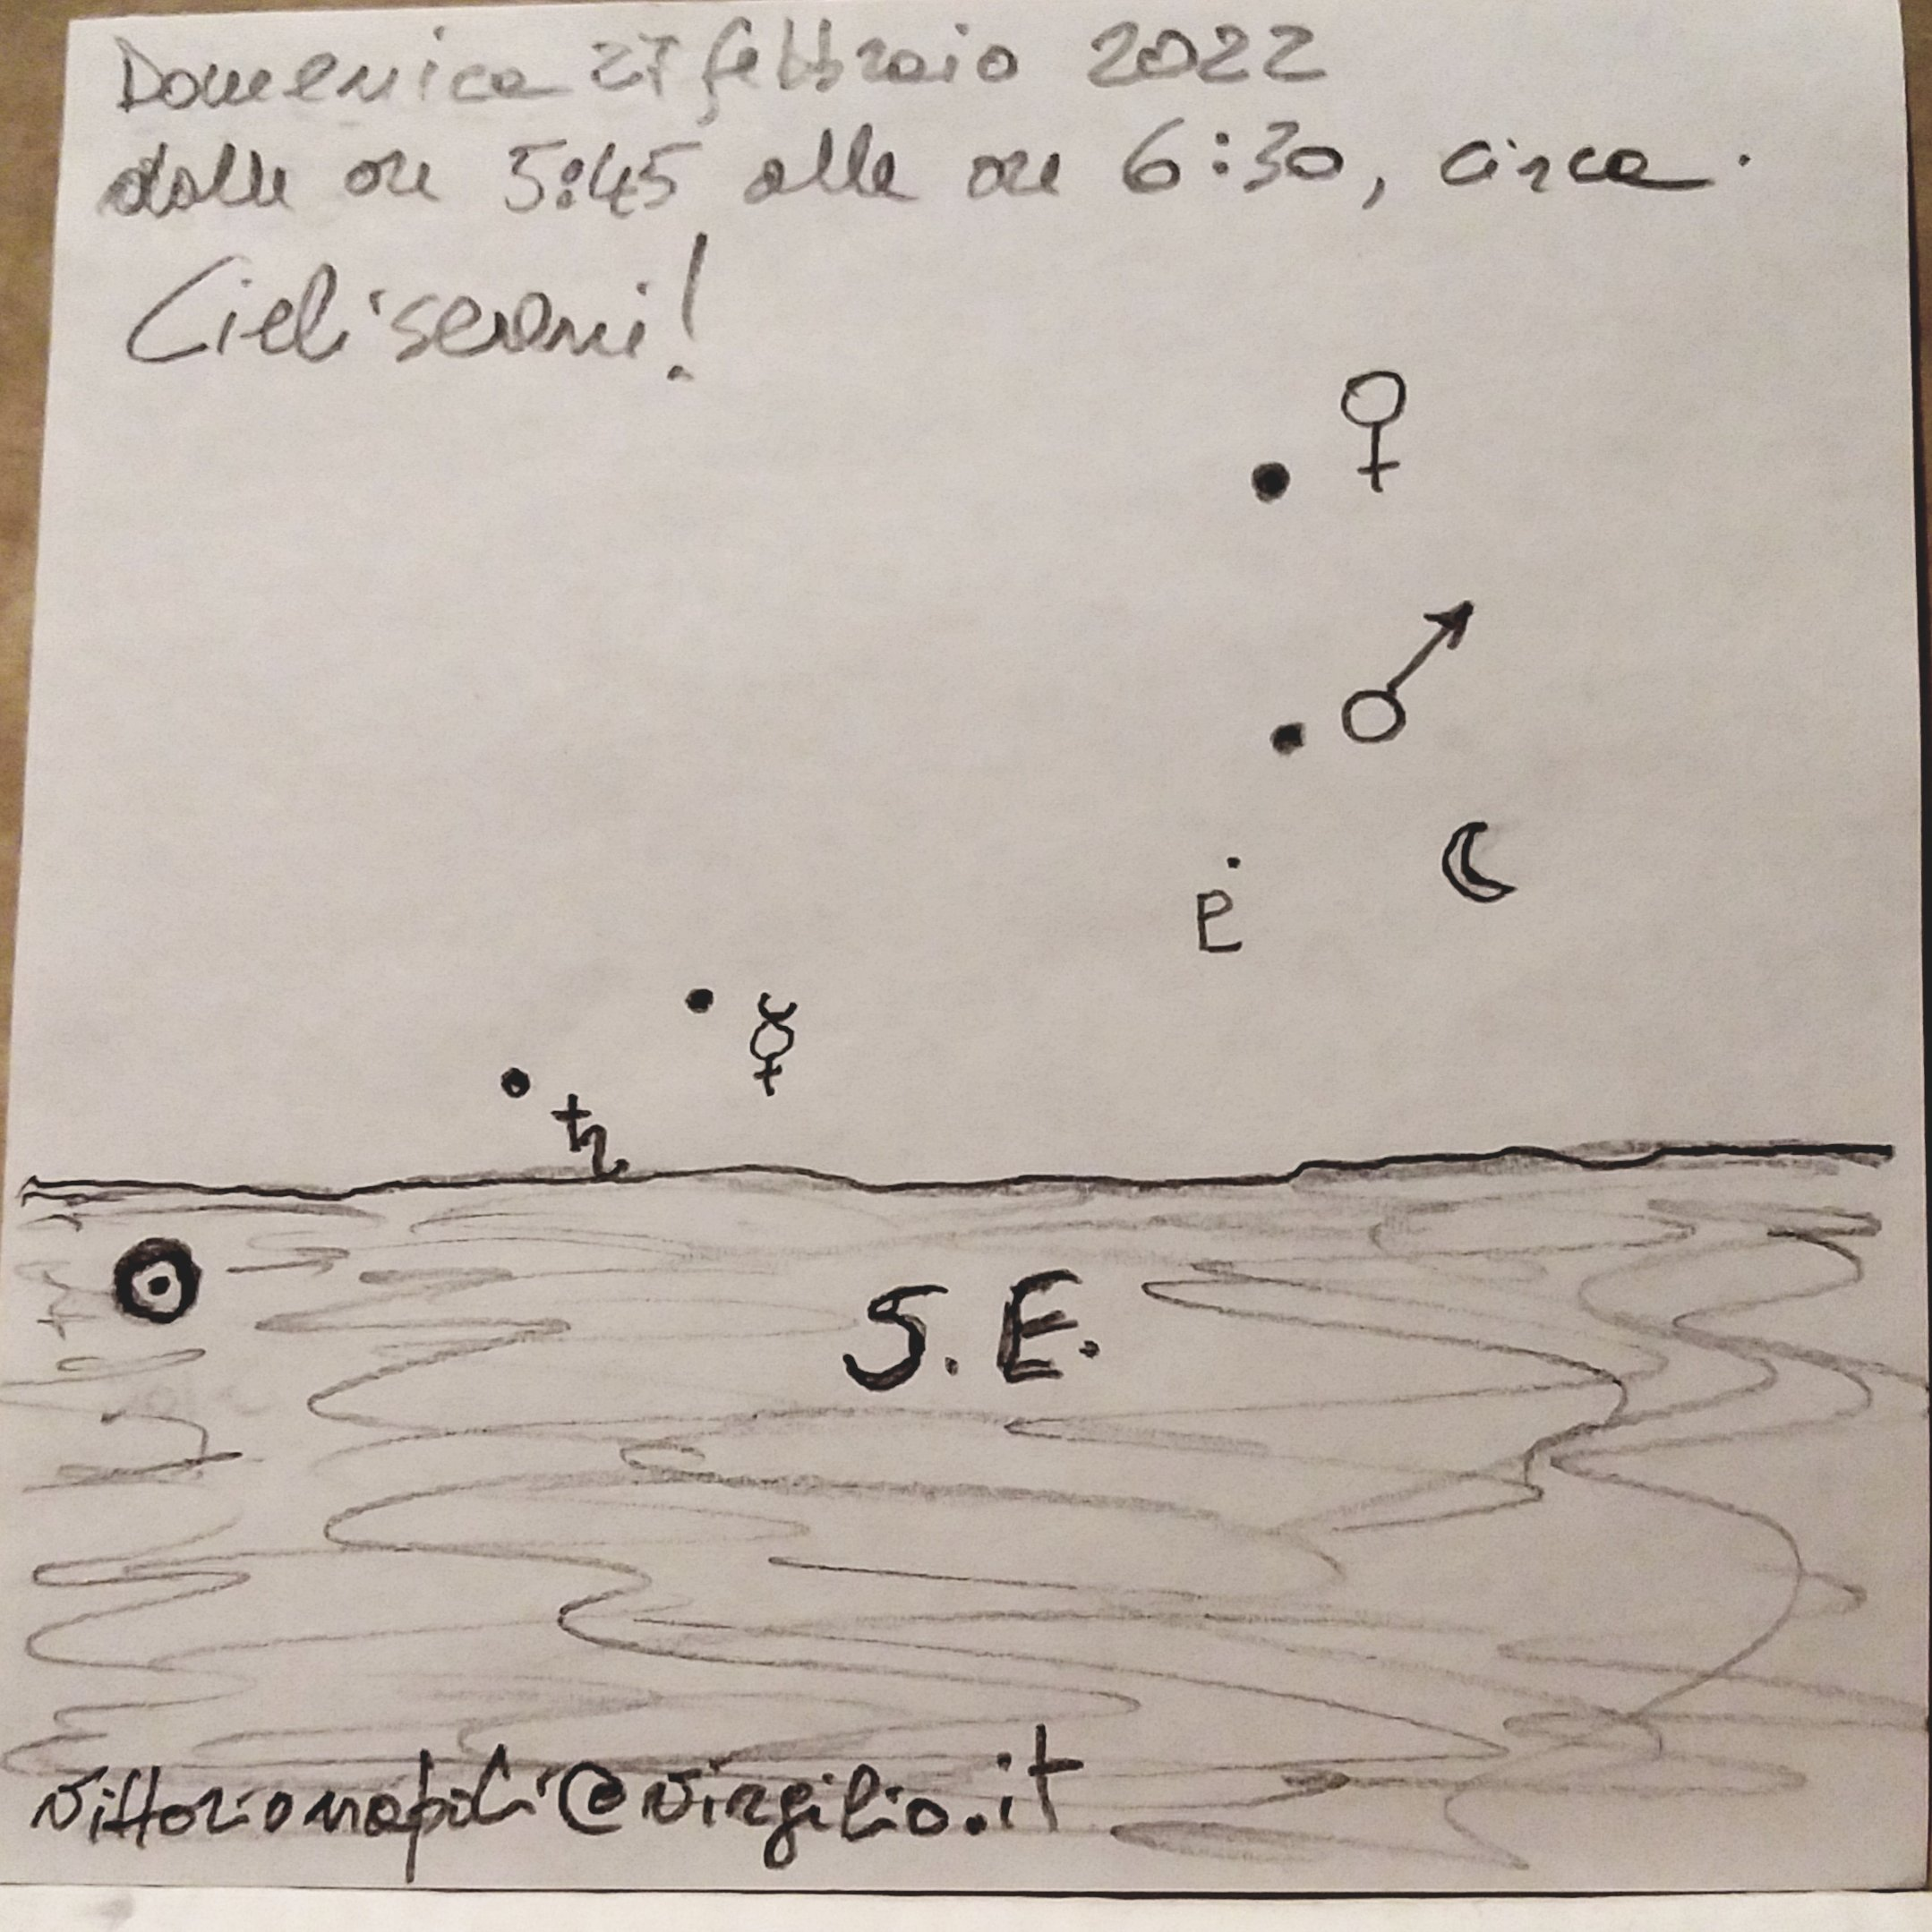 Domenica 27 febbraio 2022
dalle ore 5:45 alle ore 6:30, circa.
Cieli sereni!
♀
♂
☾
P̣L
☿
♄
☉
S.E.
vittorionapoli@virgilio.it